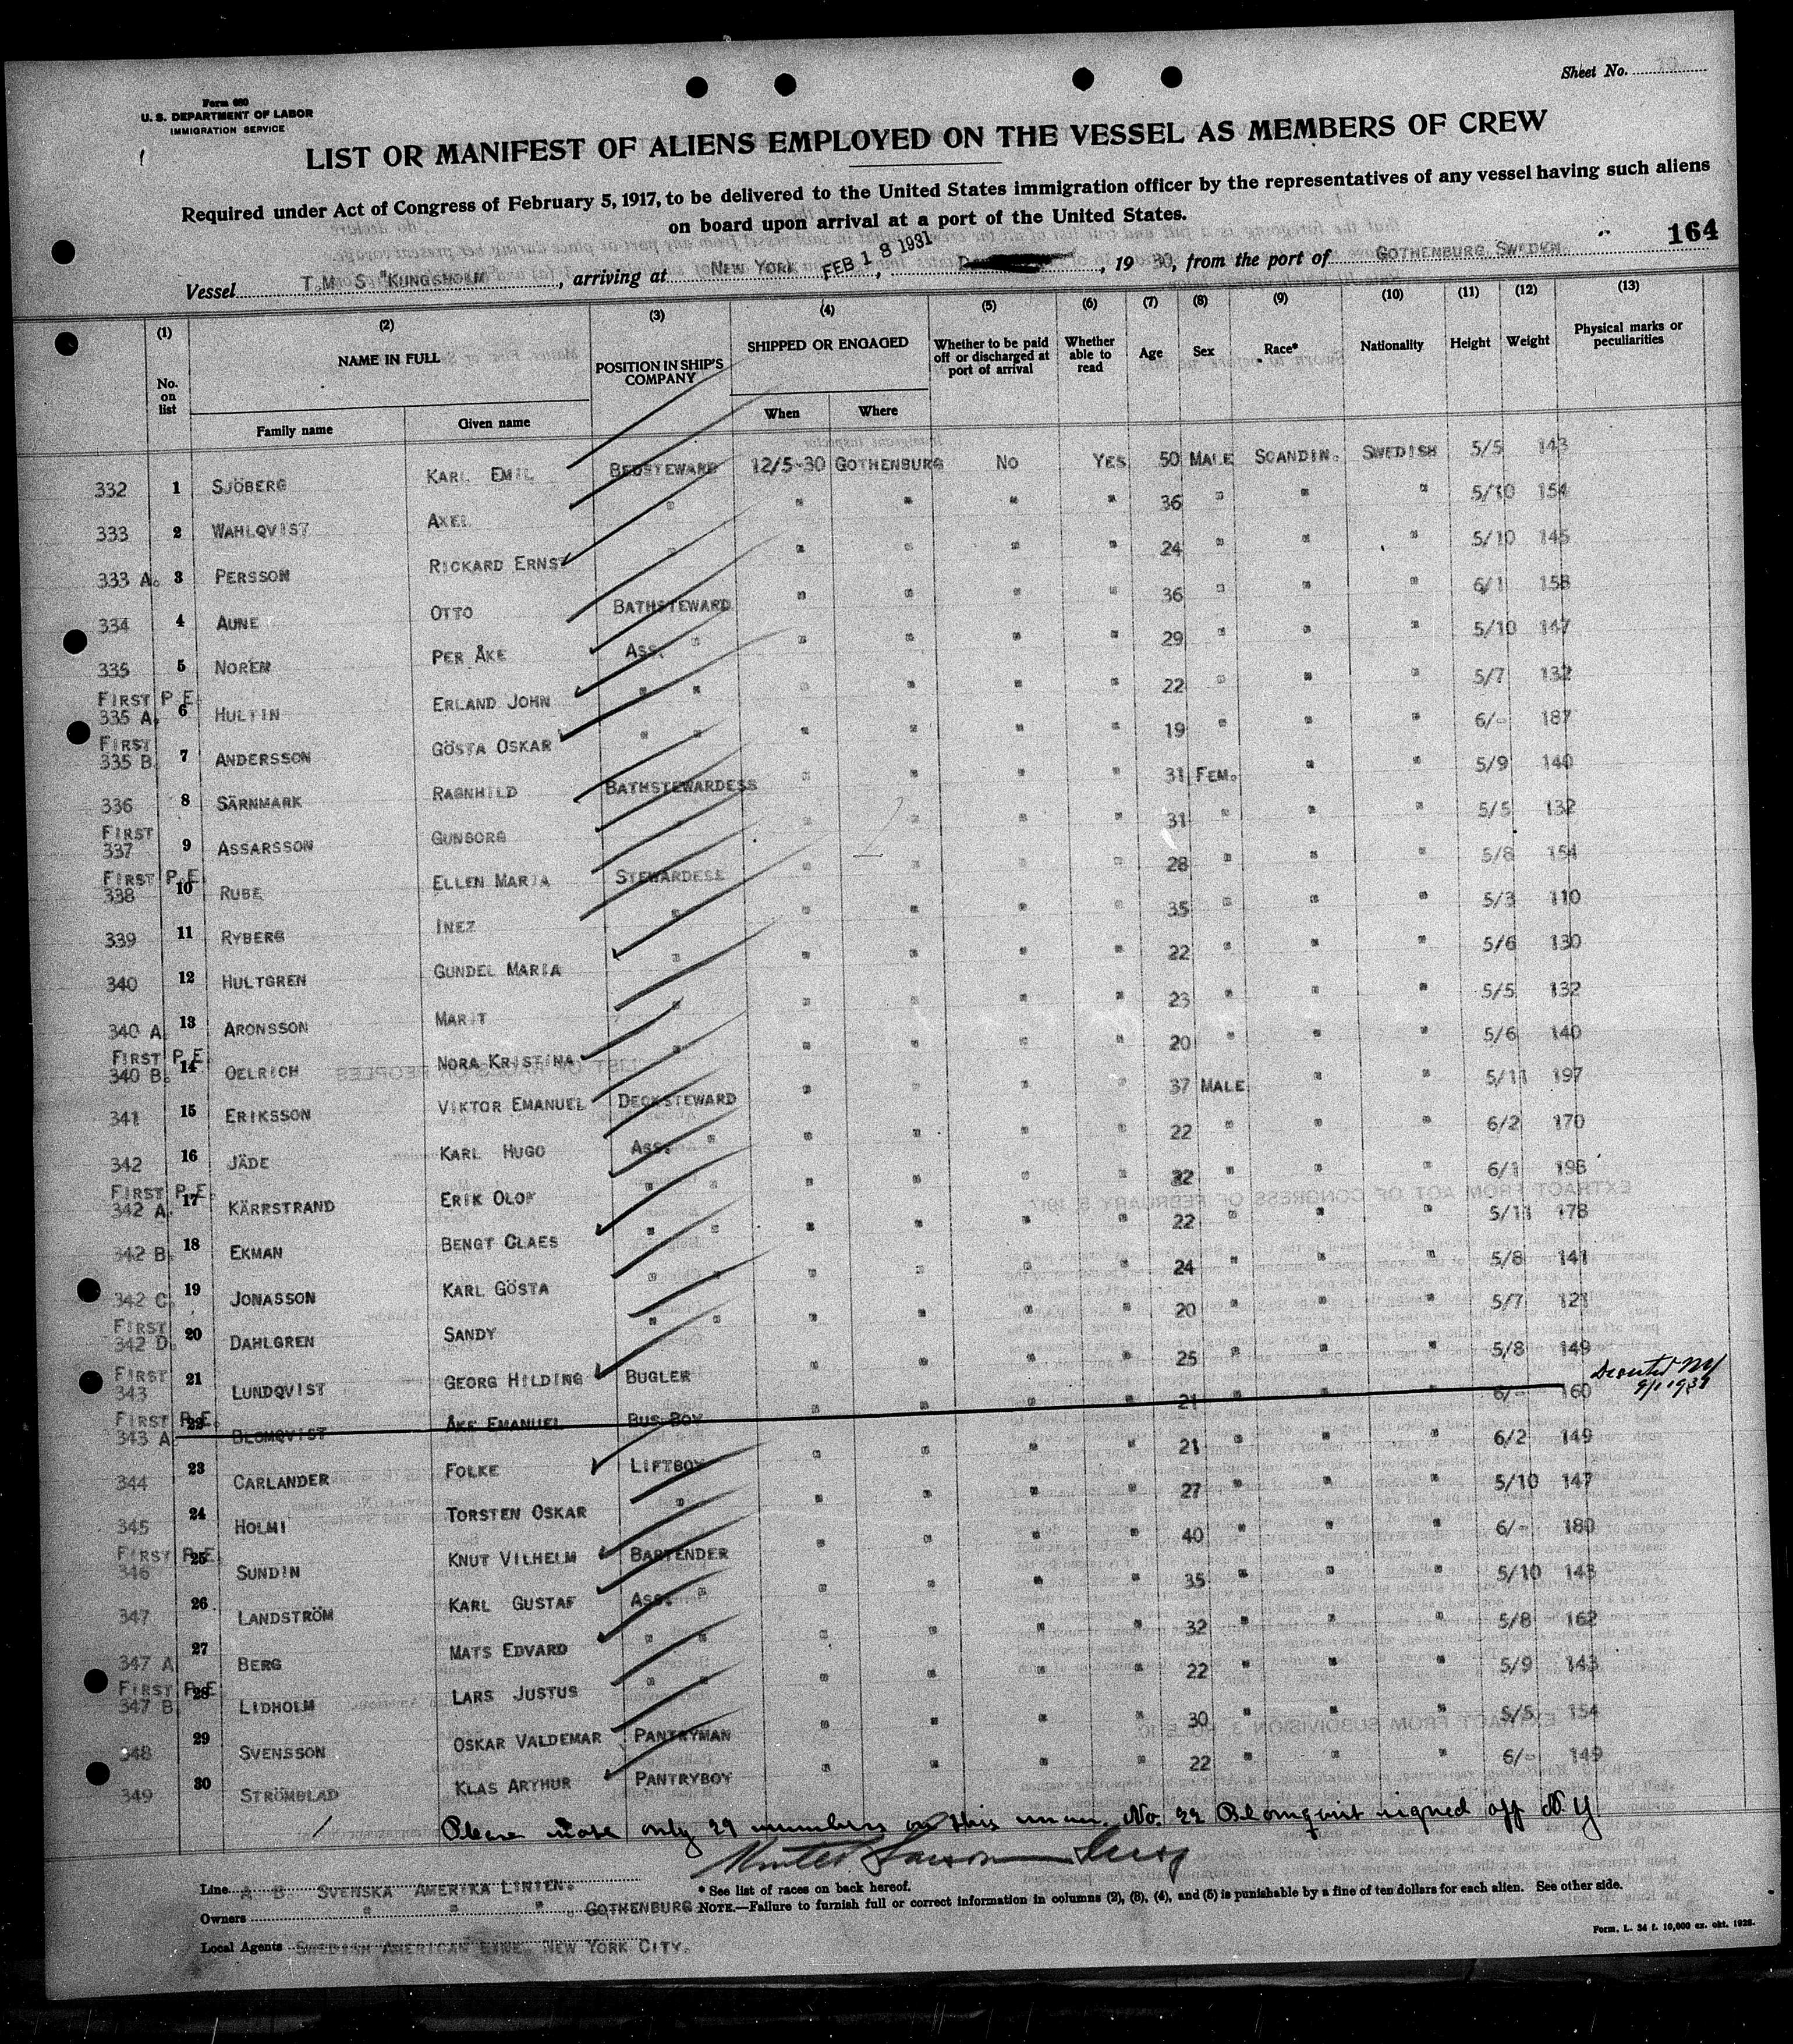 Sheet No.
Form 680
U. S. DEPARTMENT OF LABOR
IMMIGRATION SERVICE
LIST OR MANIFEST OF ALIENS EMPLOYED ON THE VESSEL AS MEMBERS OF CREW
Required under Act of Congress of February 5, 1917, to be delivered to the United States immigration officer by the representatives of any vessel having such aliens
on board upon arrival at a port of the United States.
164
Vessel T.M. S "KUNGSHOLM , arriving at NEW YORK FEB 18 1931, , 19 30, from the port of GOTHENBURG, SWEDEN.
(1) (2) (3) (4) (5) (6) (7) (8) (9) (10) (11) (12) (13)
No. on list NAME IN FULL POSITION IN SHIP'S COMPANY SHIPPED OR ENGAGED Whether to be paid off or discharged at port of arrival Whether able to read Age Sex Race* Nationality Height Weight Physical marks or peculiarities
Family name Given name When Where
332 1 SJÖBERG KARL EMIL BEDSTEWARD 12/5-30 GOTHENBURG NO YES 50 MALE SCANDIN. SWEDISH 5/5 143
333 2 WAHLQVIST AXEL " " " " " 36 " " " 5/10 154
333 A. 3 PERSSON RICKARD ERNST " " " " " 24 " " " 5/10 145
334 4 AUNE OTTO BATHSTEWARD " " " " 36 " " " 6/1 158
335 5 NORÉN PER ÅKE ASS. " " " " " 29 " " " 5/10 147
FIRST P.E. 335 A. 6 HULTIN ERLAND JOHN " " " " " " 22 " " " 5/7 132
FIRST 335 B. 7 ANDERSSON GÖSTA OSKAR " " " " " " 19 " " " 6/- 187
336 8 SÄRNMARK RAGNHILD BATHSTEWARDESS " " " " 31 FEM. " " 5/9 140
FIRST 337 9 ASSARSSON GUNBORG " " " " " 31 " " " 5/5 132
FIRST P.E. 338 10 RUBE ELLEN MARIA STEWARDESS " " " " 28 " " " 5/8 154
339 11 RYBERG INEZ " " " " " 35 " " " 5/3 110
340 12 HULTGREN GUNDEL MARIA " " " " " 22 " " " 5/6 130
340 A. 13 ARONSSON MARIT " " " " " 23 " " " 5/5 132
FIRST P.E. 340 B. 14 OELRICH NORA KRISTINA " " " " " 20 " " " 5/6 140
341 15 ERIKSSON VIKTOR EMANUEL DECKSTEWARD " " " " 37 MALE " " 5/11 197
342 16 JÄDE KARL HUGO ASS. " " " " " 22 " " " 6/2 170
FIRST P.E. 342 A. 17 KÄRRSTRAND ERIK OLOF " " " " " 22 " " " 6/1
342 B. 18 EKMAN BENGT CLAES " " " " " " 22 " " " 5/11 178
342 C. 19 JONASSON KARL GÖSTA " " " " " " 24 " " " 5/8 141
FIRST 342 D. 20 DAHLGREN SANDY " " " " " " 20 " " " 5/7 121
FIRST 343 21 LUNDQVIST GEORG HILDING BUGLER " " " " 25 " " " 5/8 149
FIRST P.E. 343 A. 22 BLOMQVIST ÅKE EMANUEL BUS BOY " " " " 21 " " " 6/- 160
344 23 CARLANDER FOLKE LIFTBOY " " " " 21 " " " 6/2 149
345 24 HOLMI TORSTEN OSKAR " " " " " 27 " " " 5/10 147
FIRST P.E. 346 25 SUNDIN KNUT VILHELM BARTENDER " " " " 40 " " " 6/- 180
347 26 LANDSTRÖM KARL GUSTAF ASS. " " " " " 35 " " " 5/10 143
347 A 27 BERG MATS EDVARD " " " " " " 32 " " " 5/8 162
FIRST P.E. 347 B. 28 LIDHOLM LARS JUSTUS " " " " " " 22 " " " 5/9 143
348 29 SVENSSON OSKAR VALDEMAR PANTRYMAN " " " " 30 " " " 5/5 154
349 30 STRÖMBLAD KLAS ARTHUR PANTRYBOY " " " " 22 " " " 6/- 149
Please note only 29 members on this No. 22 Blomqvist signed off N.Y.
Line A. B. SVENSKA AMERIKA LINIEN.
* See list of races on back hereof.
Owners " " " , GOTHENBURG NOTE.—Failure to furnish full or correct information in columns (2), (3), (4), and (5) is punishable by a fine of ten dollars for each alien. See other side.
Local Agents SWEDISH AMERICAN LINE, NEW YORK CITY.
Form. L. 34 f. 10,000 ex. okt. 1928.